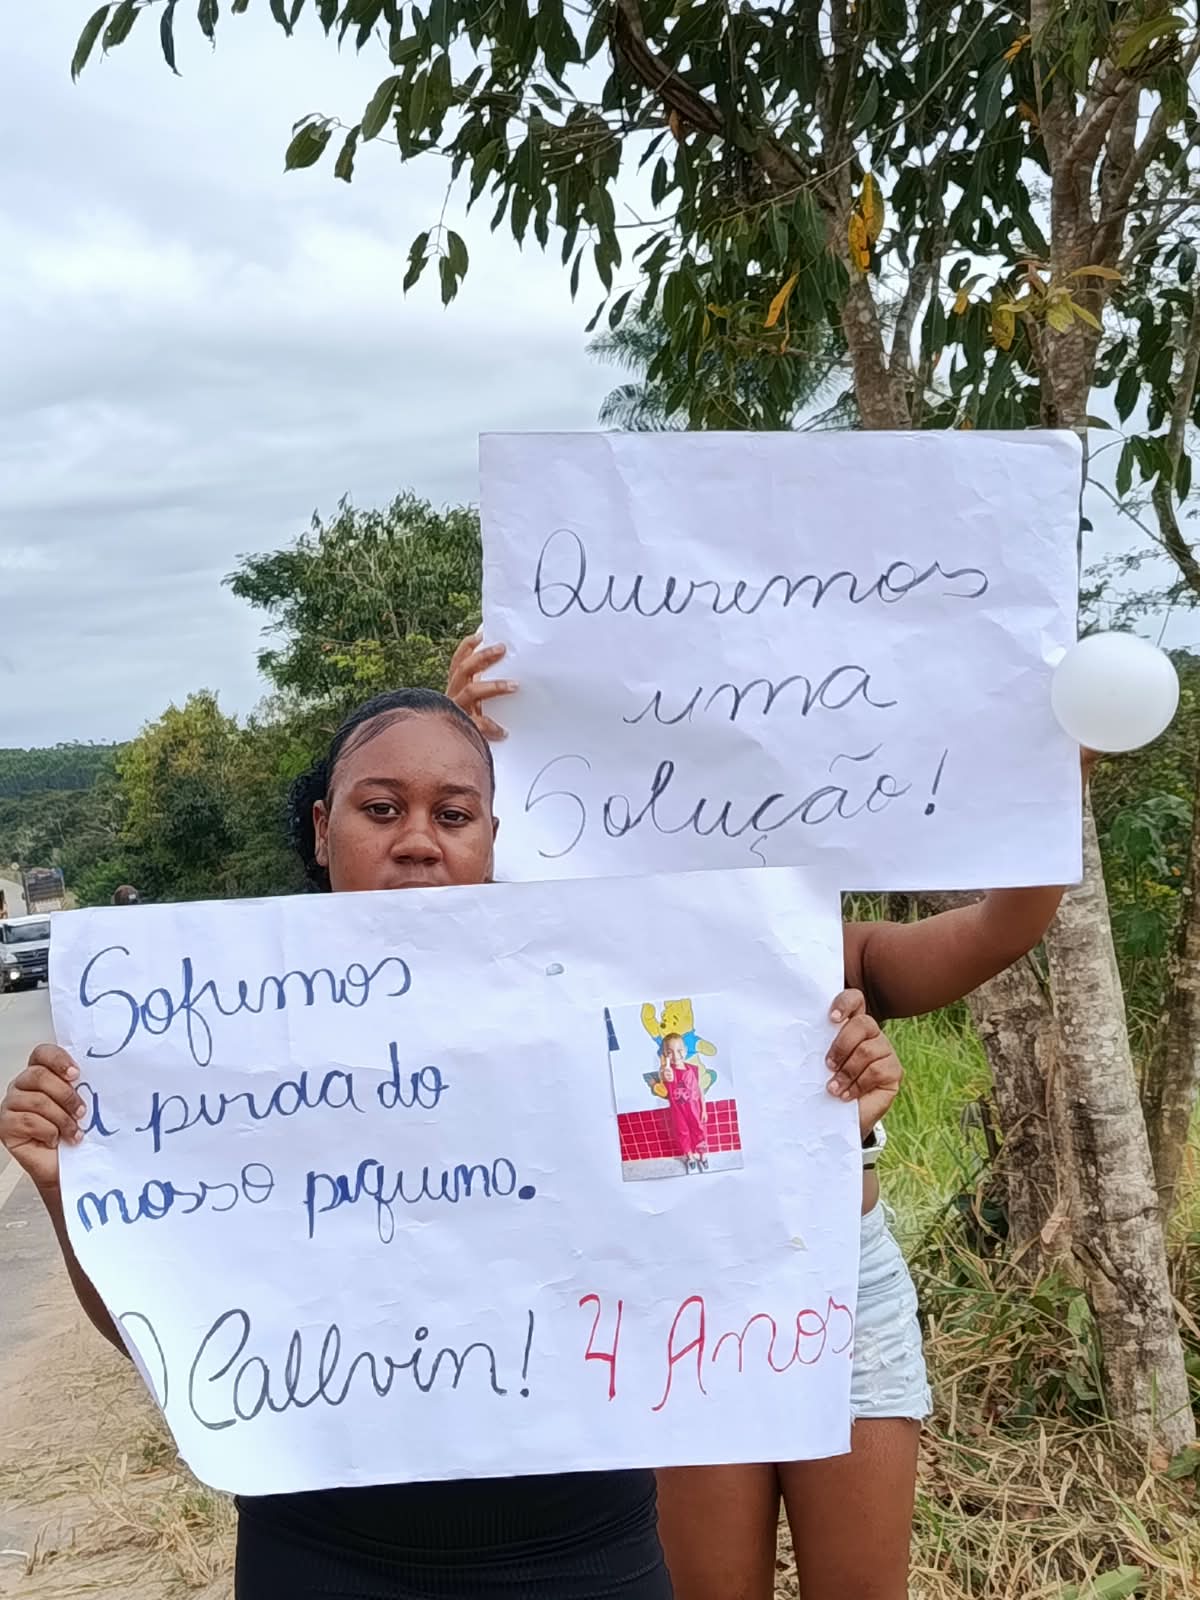 Queremos
uma
Solução!
Sofremos
a perda do
nosso pequeno.
O Callvin! 4 Anos